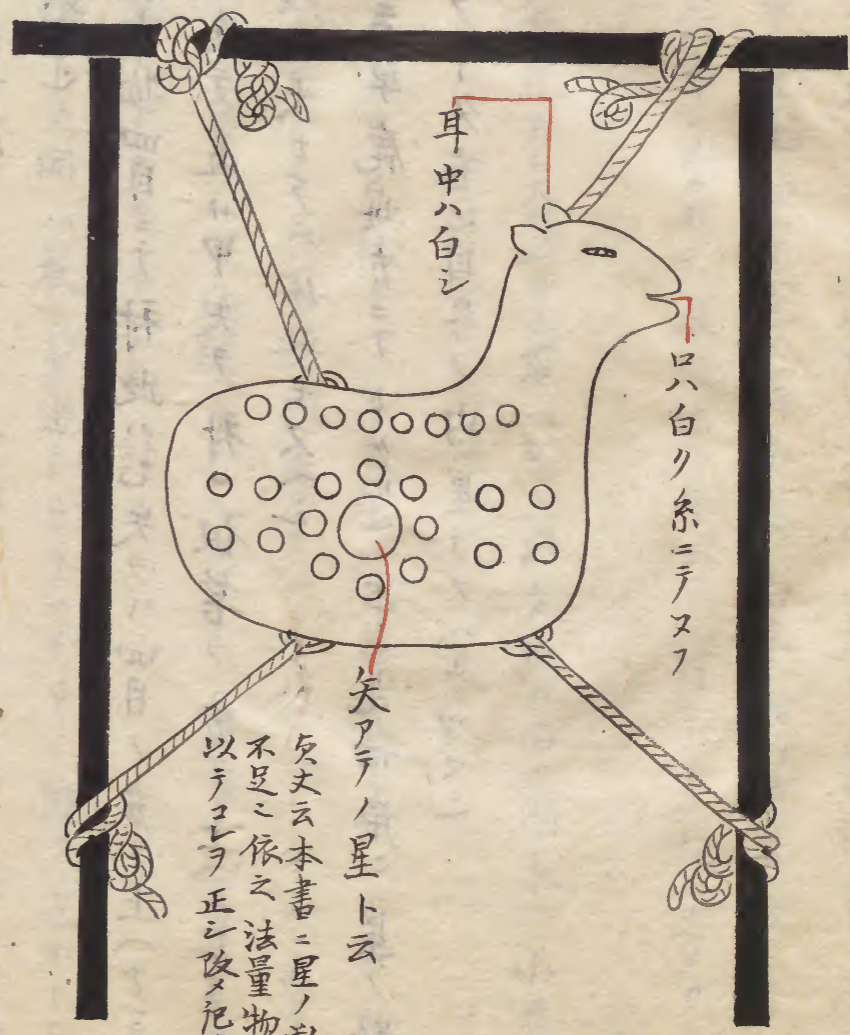 口ハ白ク糸ニテヌフ
耳中ハ白シ
矢アテノ星ト云
貞丈云本書ニ星ノ
不足ニ依之法量物
以テコレヲ正シ改メ